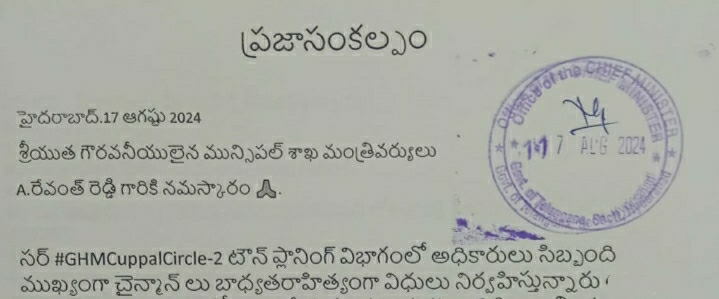 ప్రజాసంకల్పం
హైదరాబాద్.17 ఆగష్టు 2024
శ్రీయుత గౌరవనీయులైన మున్సిపల్ శాఖ మంత్రివర్యులు
A.రేవంత్ రెడ్డి గారికి నమస్కారం 🙏.
Office of the CHIEF MINISTER
17 AUG 2024
Govt. of Telangana, Sectt.
సర్ #GHMCuppalCircle-2 టౌన్ ప్లానింగ్ విభాగంలో అధికారులు సిబ్బంది
ముఖ్యంగా చైన్మాన్ లు బాధ్యతరాహిత్యంగా విధులు నిర్వహిస్తున్నారు